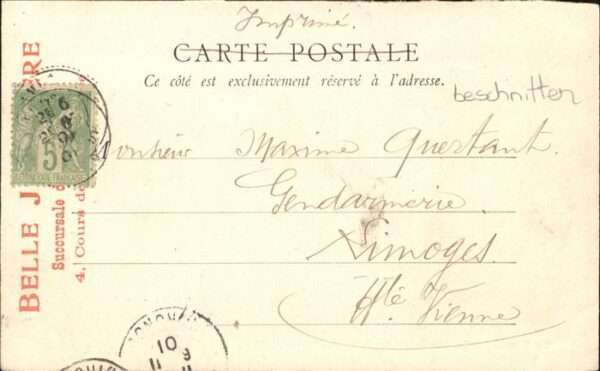 Imprimé.
CARTE POSTALE
Ce côté est exclusivement réservé à l'adresse.
beschnitten
Monsieur Maxime Quertant.
Gendarmerie.
Limoges.
Hte Vienne
BELLE J RE
Succursale d
4, Cours de
5
10